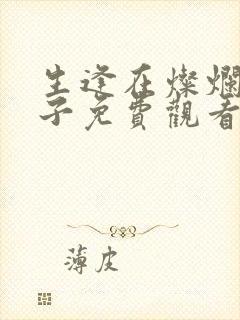 生逢在燦爛
子免費觀看
薄皮